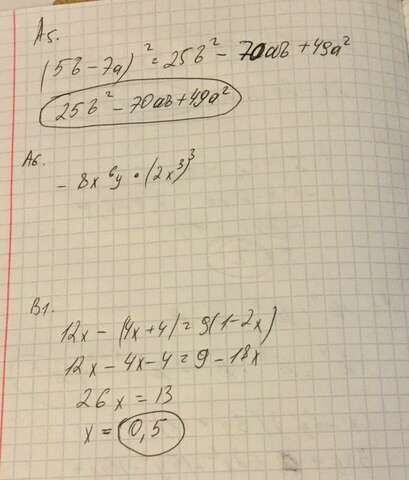 А5.
(5b - 7a)² = 25b² - 70ab + 49a²
25b² - 70ab + 49a²
А6.
- 8x⁶y · (2x³)³
В1.
12x - (4x + 4) = 9(1 - 2x)
12x - 4x - 4 = 9 - 18x
26x = 13
x = 0,5